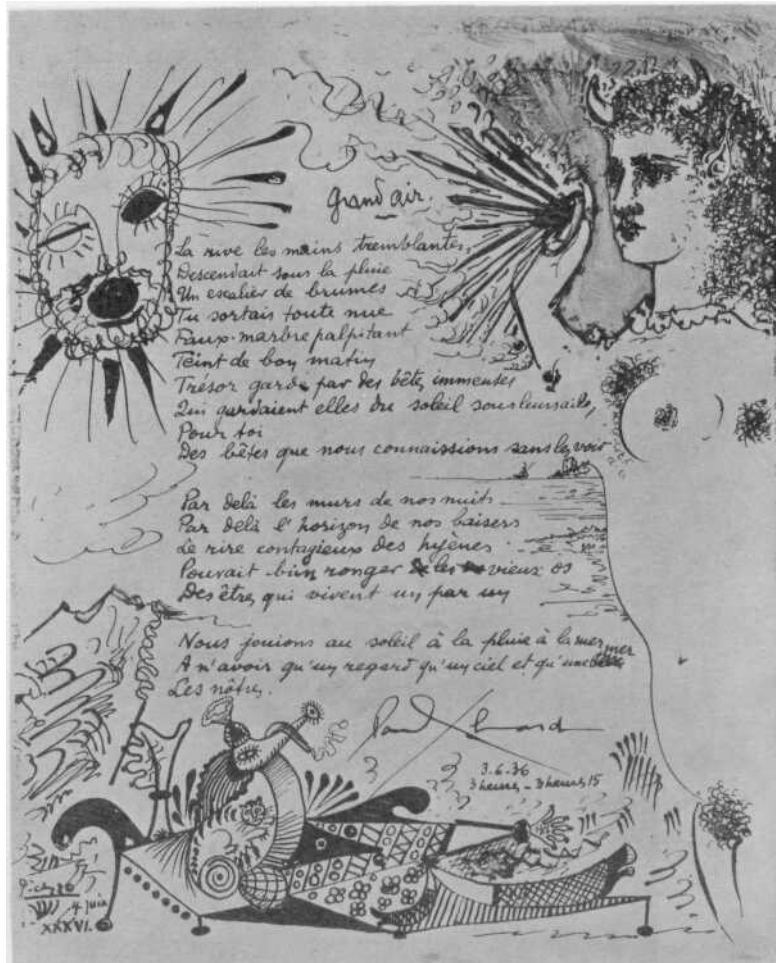 grand air.
La rive les mains tremblantes,
Descendait sous la pluie
Un escalier de brumes
Tu sortais toute nue
Faux marbre palpitant
Teint de bon matin
Trésor gardé par des bêtes immenses
Qui gardaient elles du soleil sous leurs ailes,
Pour toi
Des bêtes que nous connaissions sans les voir
Par delà les murs de nos nuits
Par delà l'horizon de nos baisers
Le rire contagieux des hyènes
Pouvait bien ronger les vieux os
Des êtres qui vivent un par un
Nous jouions au soleil à la pluie à la mer mer
A n'avoir qu'un regard qu'un ciel et qu'une
Les nôtres.
Paul Eluard
3.6.36
3 heures - 3 heures 15
Picasso
4 juin
XXXVI.